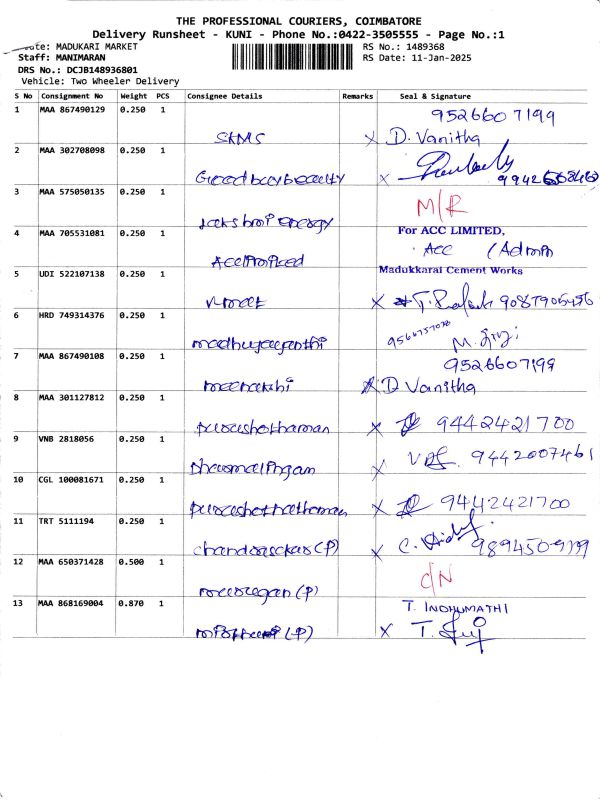 THE PROFESSIONAL COURIERS, COIMBATORE
Delivery Runsheet - KUNI - Phone No.:0422-3505555 - Page No.:1
MADUKARI MARKET RS No.: 1489368
Staff: MANIMARAN RS Date: 11-Jan-2025
DRS No.: DCJB148936801
Vehicle: Two Wheeler Delivery
S No Consignment No Weight PCS Consignee Details Remarks Seal & Signature
1 MAA 867490129 0.250 1 SKMS 9526607199
X D. Vanitha
2 MAA 302708098 0.250 1 X
3 MAA 575050135 0.250 1 energy M/R
4 MAA 705531081 0.250 1 For ACC LIMITED,
ACC (Admn
Madukkarai Cement Works
5 UDI 522107138 0.250 1 V-mart X
6 HRD 749314376 0.250 1 madhujayanthi
7 MAA 867490108 0.250 1 meenakshi 9526607199
X D Vanitha
8 MAA 301127812 0.250 1 purushothaman X 9442421700
9 VNB 2818056 0.250 1 X 9442007461
10 CGL 100081671 0.250 1 X 9442421700
11 TRT 5111194 0.250 1 (P) X C.
12 MAA 650371428 0.500 1 murugan (P) C/N
13 MAA 868169004 0.870 1 (P) T. INDHUMATHI
X T.